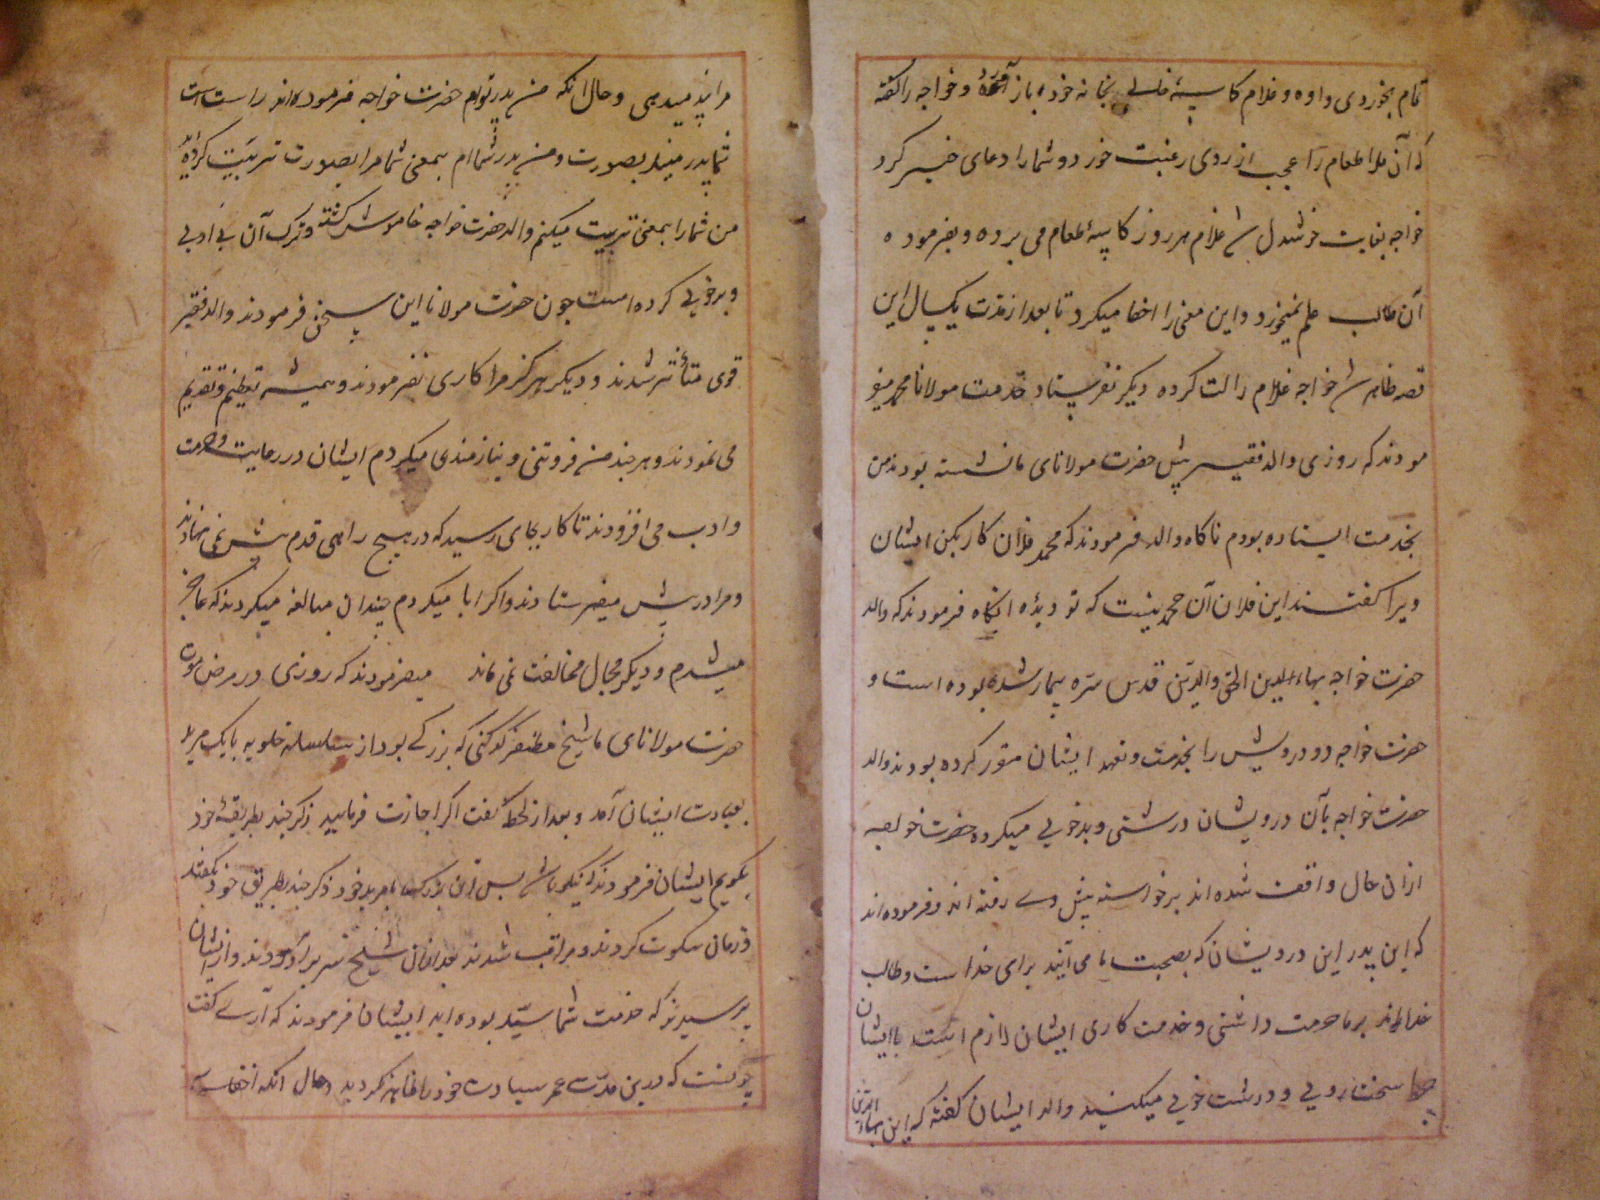 تمام بخوردی داوه و غلام کاسهٔ خالی بخانه خود باز آورده و خواجه را گفته
که آن ملا طعام را عجب از روی رغبت خورد و شما را دعای خیر کرد
خواجه بغایت خوشدل شد غلام هر روز کاسهٔ طعام می برده و بفرموده
آن طالب علم نمیخورد و این معنی را اخفا میکرد تا بعد از مدت یکسال این
قصه ظاهر شد خواجه غلام را لت کرده دیگر نفرستاد خدمت مولانا محمد میفر
مودند که روزی والد فقیر پیش حضرت مولانای ما نشسته بودند من
بخدمت ایستاده بودم ناکاه والد فرمودند که محمد فلان کار بکن ایشان
ویرا گفتند این فلان آن محمد نیست که تو دیدهٔ انگاه فرمودند که والد
حضرت خواجه بهاءالدین الحق والدین قدس سره بیمار شده بوده است و
حضرت خواجه دو درویش را بخدمت و تعهد ایشان مقرر کرده بودند والد
حضرت خواجه بآن درویشان درشتی و بدخویی میکرده حضرت خواجه
ازان حال واقف شده اند برخواسته پیش وی رفته اند و فرموده اند
که این پدر این درویشان که بصحبت ما می آیند برای خداست و طالب
خدااند بر ما حرمت داشتی و خدمت کاری ایشان لازم است با ایشان
چرا سخت رویی و درشت خویی میکنید والد ایشان گفته که این بهاءالدین
مرا پند میدهی و حال انکه من پدر توام حضرت خواجه فرموده اند راست است
شما پدر منید بصورت و من پدر شماام بمعنی شما مرا بصورت تربیت کرده اید
من شما را بمعنی تربیت میکنم والد حضرت خواجه خاموش گشته و ترک آن بی ادبی
و بدخویی کرده است چون حضرت مولانا این سخن فرمودند والد فقیر
قوی متأثر شدند و دیگر هرکز مرا کاری نفرمودند و همیشه تعظیم و تقدیم
می نمودند و هر چند من فروتنی و نیازمندی میکردم ایشان در رعایت حرمت
و ادب می افزودند تا کار بجای رسید که در هیچ راهی قدم پیش نمی نهادند
و مرا در پیش میفرستادند و اگر ابا میکردم چندان مبالغه میکردند که عاجز
میشدم و دیگر مجال مخالفت نمی ماند میفرمودند که روزی در مرض موت
حضرت مولانای ما شیخ مظفر کدکنی که بزرگی بود از سلسله خلویه با یک مرید
بعیادت ایشان آمد و بعد از لحظه گفت اگر اجازت فرمایید ذکر چند بطریقهٔ خود
بگویم ایشان فرمودند که نیکو باشد پس آن بزرگ با مرید خود ذکر چند بطریق خود بگفتند
و زمان سکوت کردند و مراقب شدند بعد ازان شیخ سر برآوردند و از ایشان
پرسیدند که خدمت شما سید بوده اید ایشان فرمودند که آری گفت
چونست که درین مدت عمر سیادت خود را ظاهر نکردید و حال انکه اخفای